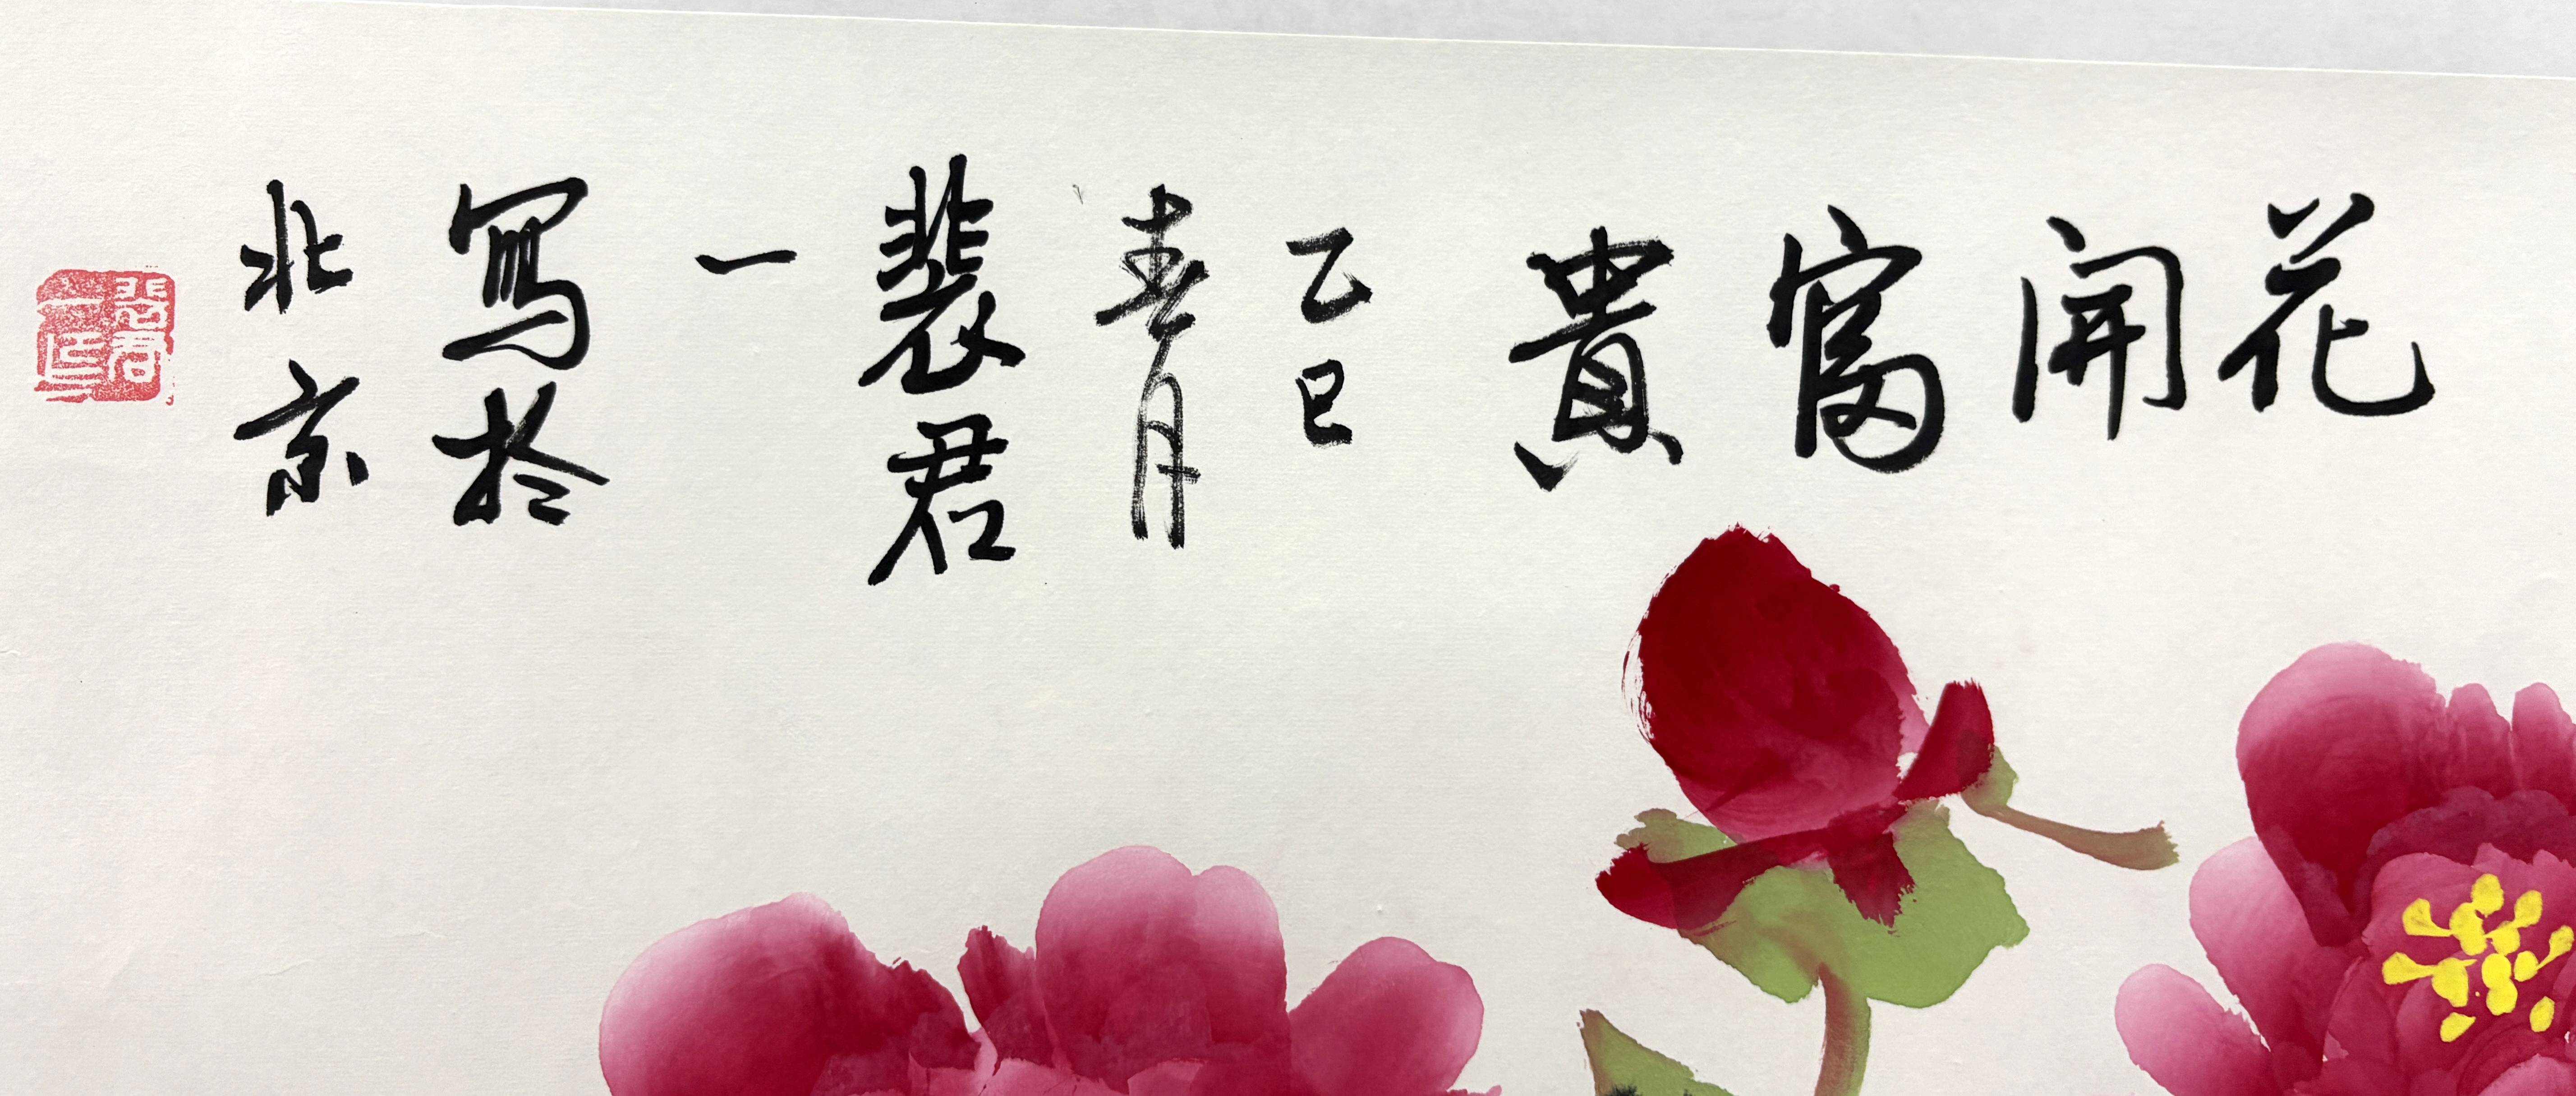 花開富貴
乙巳
春月
裴君
一
寫於
北京
裴君一印